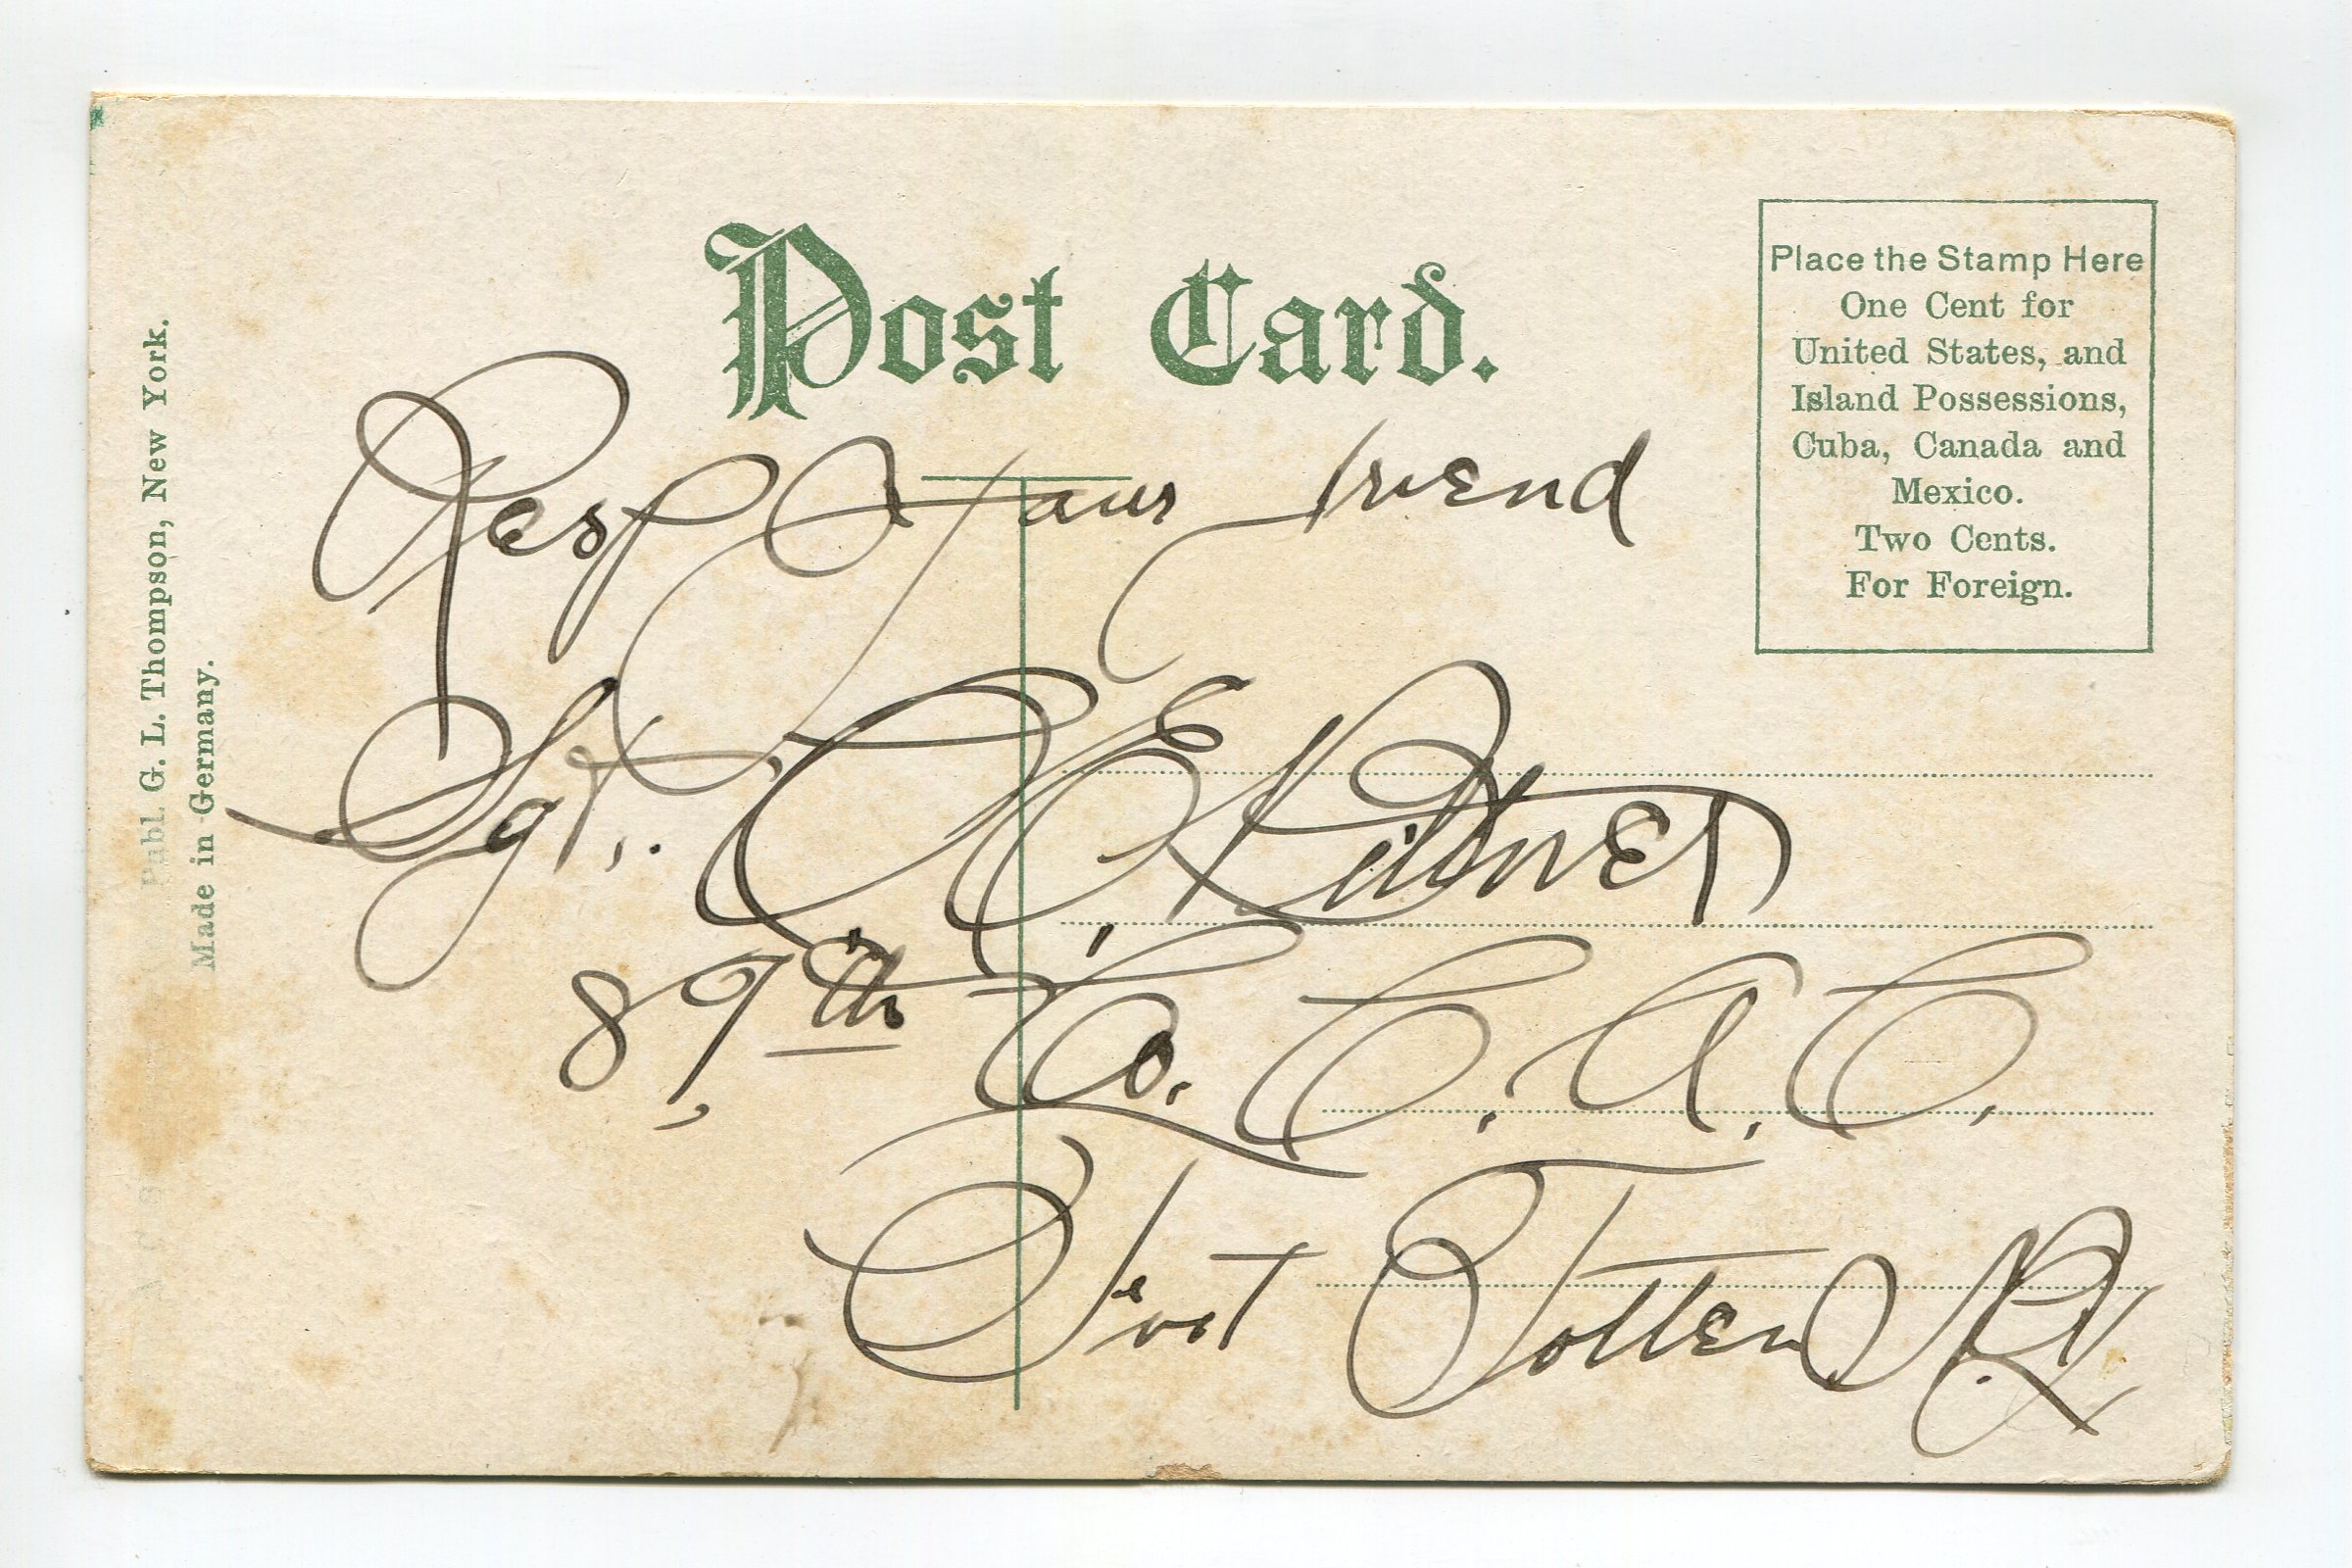 Post Card.
Place the Stamp Here
One Cent for
United States, and
Island Possessions,
Cuba, Canada and
Mexico.
Two Cents.
For Foreign.
Publ. G. L. Thompson, New York.
Made in Germany.
Resp Your friend
Sgt. C. E.
89th Co. C. A. C.
Fort Totten N.Y.